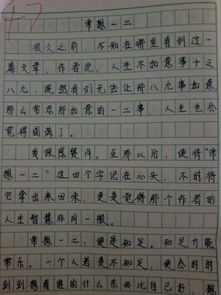 47
常想一二
很久之前，不知在哪里看到过一
篇文章，作者说，人生不如意事十之
八九，既然我们无法让那八九事如意，
那么常想那如意的一二事，人生也会
觉得圆满了。
我很感赞同，至那以后，便将“常
想一二”这四个字记在心头，不时将
它拿出来回味，更是觉得那个作者的
人生智慧非同一般。
常想一二，便是知足。知足方能
常乐，一个人若是不知足，便会时时
刻刻想着谁的什么东西比自己好，